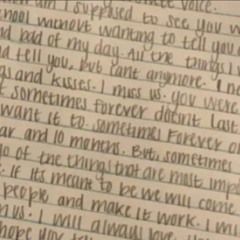 am I supposed to see you w
hool without wanting to tell you
nd bad of my day. All the things I w
d tell you. But cant anymore. I ne
gs and kisses. I miss us. You were
t sometimes forever doesnt last
want it to. Sometimes Forever on
ar and 10 months. But, sometimes
go of the things that are most imp
. If its meant to be we will come
people and make it work. I mis
us. I will always love
hope you